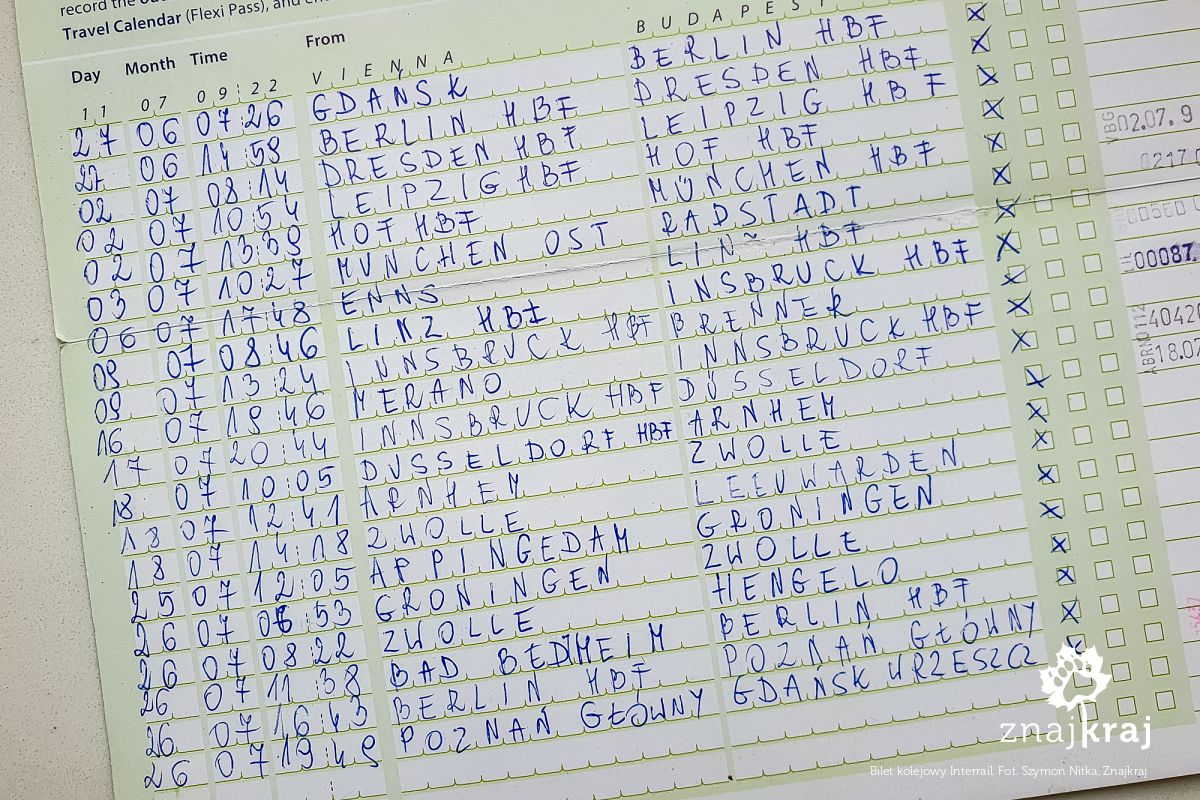 record the
Travel Calendar (Flexi Pass), and
Day Month Time From
11 07 09:22 VIENNA BUDAPEST
27 06 07:26 GDAŃSK BERLIN HBF
27 06 14:59 BERLIN HBF DRESDEN HBF
02 07 08:14 DRESDEN HBF LEIPZIG HBF
02 07 10:54 LEIPZIG HBF HOF HBF
02 07 13:39 HOF HBF MÜNCHEN HBF
03 07 10:27 MUNCHEN OST RADSTADT
06 07 17:48 ENNS LINZ HBF
09 07 08:46 LINZ HBF INSBRUCK HBF
09 07 13:24 INNSBRUCK HBF BRENNER
16 07 19:46 MERANO INNSBRUCK HBF
17 07 20:44 INNSBRUCK HBF DÜSSELDORF
18 07 10:05 DUSSELDORF HBF ARNHEM
18 07 12:41 ARNHEM ZWOLLE
18 07 14:18 ZWOLLE LEEUWARDEN
25 07 12:05 APPINGEDAM GRONINGEN
26 07 06:53 GRONINGEN ZWOLLE
26 07 08:22 ZWOLLE HENGELO
26 07 11:38 BAD BERLIN HBF
26 07 16:43 BERLIN HBF POZNAŃ GŁÓWNY
26 07 19:49 POZNAŃ GŁÓWNY GDAŃSK WRZESZCZ
02.07. 9
0217 0
=00087.
40420
18.07
znajkraj
Bilet kolejowy Interrail. Fot. Szymon Nitka, Znajkraj